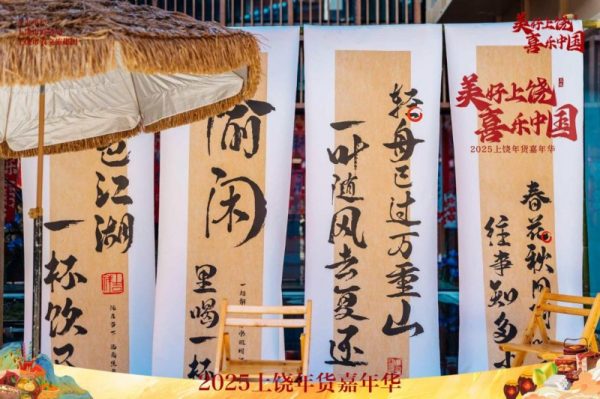 美好上饶
喜乐中国
美好上饶
喜乐中国
2025上饶年货嘉年华
春花秋月
往事知多
轻舟已过万重山
一叶随风去复还
偷闲
里喝一杯
江湖
一杯饮
2025上饶年货嘉年华